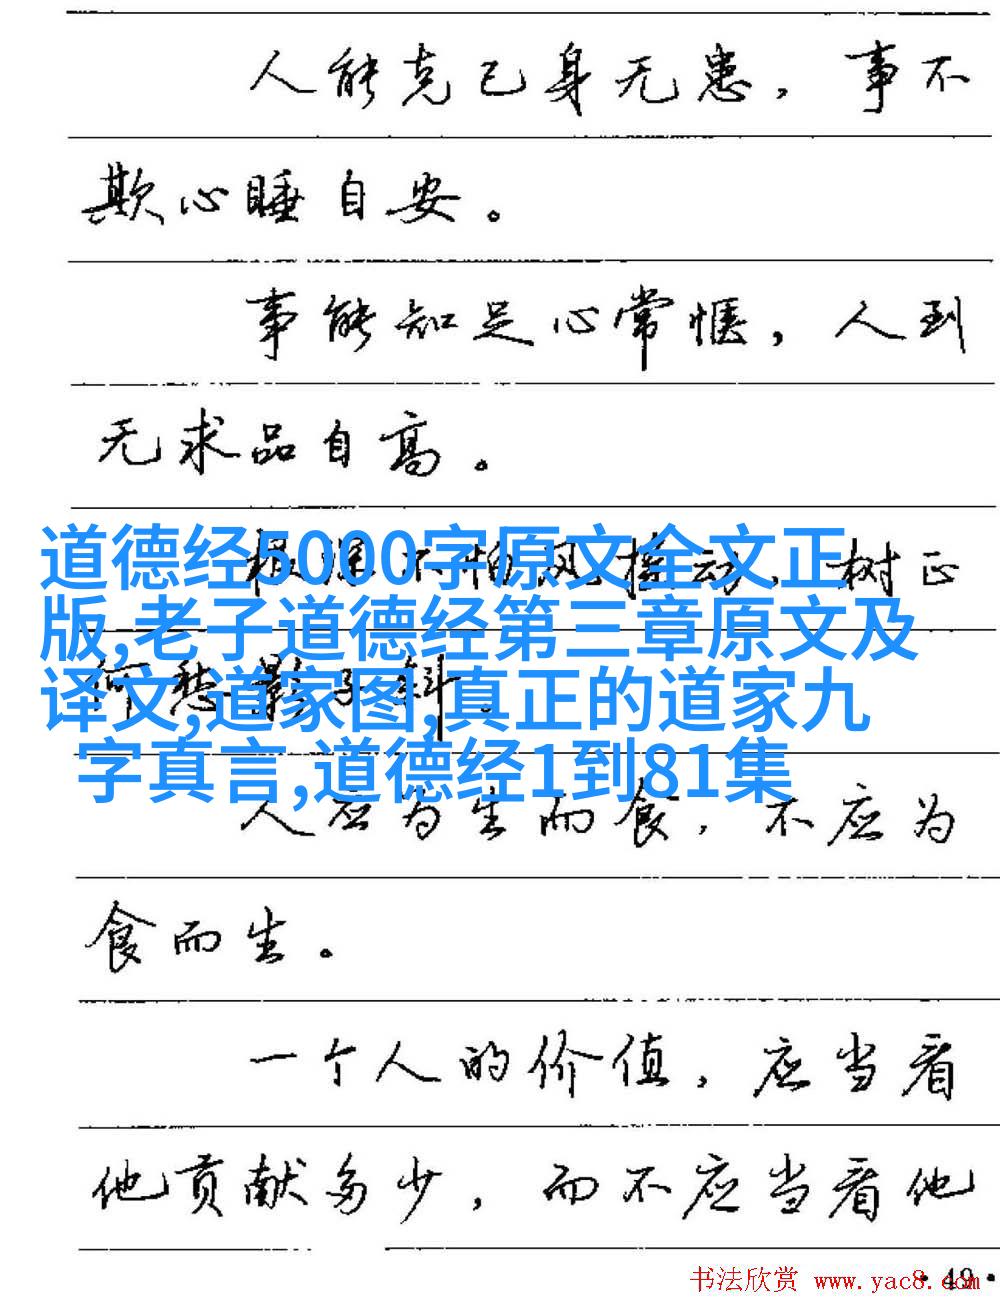 人能克己身无患，事不
欺心睡自安。
事能知足心常惬，人到
无求品自高。
道德经5000字原文全文正
版,老子道德经第三章原文及
译文,道家图,真正的道家九
字真言,道德经1到81集
树正
人应为生而食，不应为
食而生。
一个人的价值，应当看
他贡献多少，而不应当看他
·49·
书法欣赏 www.yac8.com